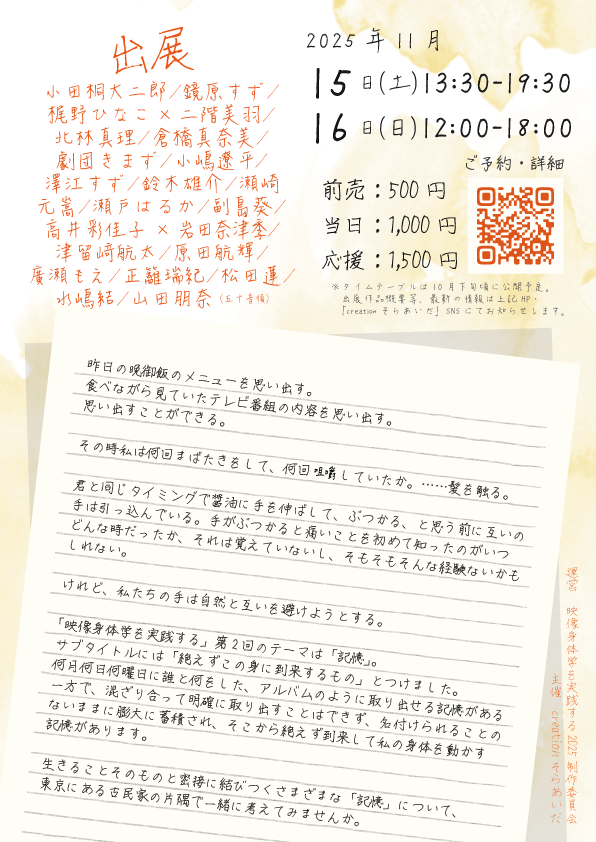 出展
小田桐大二郎/鏡原すず/
梶野ひなこ × 二階美羽/
北林真理/倉橋真奈美/
劇団きまず/小嶋遼平/
澤江すず/鈴木雄介/瀬崎
元嵩/瀬戸はるか/副島葵/
高井彩佳子 × 岩田奈津季/
津留﨑航太/原田航輝/
廣瀬もえ/正籬瑞紀/松田蓮/
水嶋結/山田朋奈(五十音順)
2025 年 11 月
15 日(土)13:30-19:30
16 日(日)12:00-18:00
ご予約・詳細
前売：500 円
当日：1,000 円
応援：1,500 円
※タイムテーブルは10月下旬頃に公開予定。
出展作品概要等、最新の情報は上記HP・
「creation そらあいだ」SNS にてお知らせします。
昨日の晩御飯のメニューを思い出す。
食べながら見ていたテレビ番組の内容を思い出す。
思い出すことができる。
その時私は何回まばたきをして、何回咀嚼していたか。……髪を触る。
君と同じタイミングで醤油に手を伸ばして、ぶつかる、と思う前に互いの
手は引っ込んでいる。手がぶつかると痛いことを初めて知ったのがいつ
どんな時だったか、それは覚えていないし、そもそもそんな経験ないかも
しれない。
けれど、私たちの手は自然と互いを避けようとする。
「映像身体学を実践する」第2回のテーマは「記憶」。
サブタイトルには「絶えずこの身に到来するもの」とつけました。
何月何日何曜日に誰と何をした、アルバムのように取り出せる記憶がある
一方で、混ざり合って明確に取り出すことはできず、名付けられることの
ないままに膨大に蓄積され、そこから絶えず到来して私の身体を動かす
記憶があります。
生きることそのものと密接に結びつくさまざまな「記憶」について、
東京にある古民家の片隅で一緒に考えてみませんか。
運営 映像身体学を実践する2025制作委員会
主催 creation そらあいだ